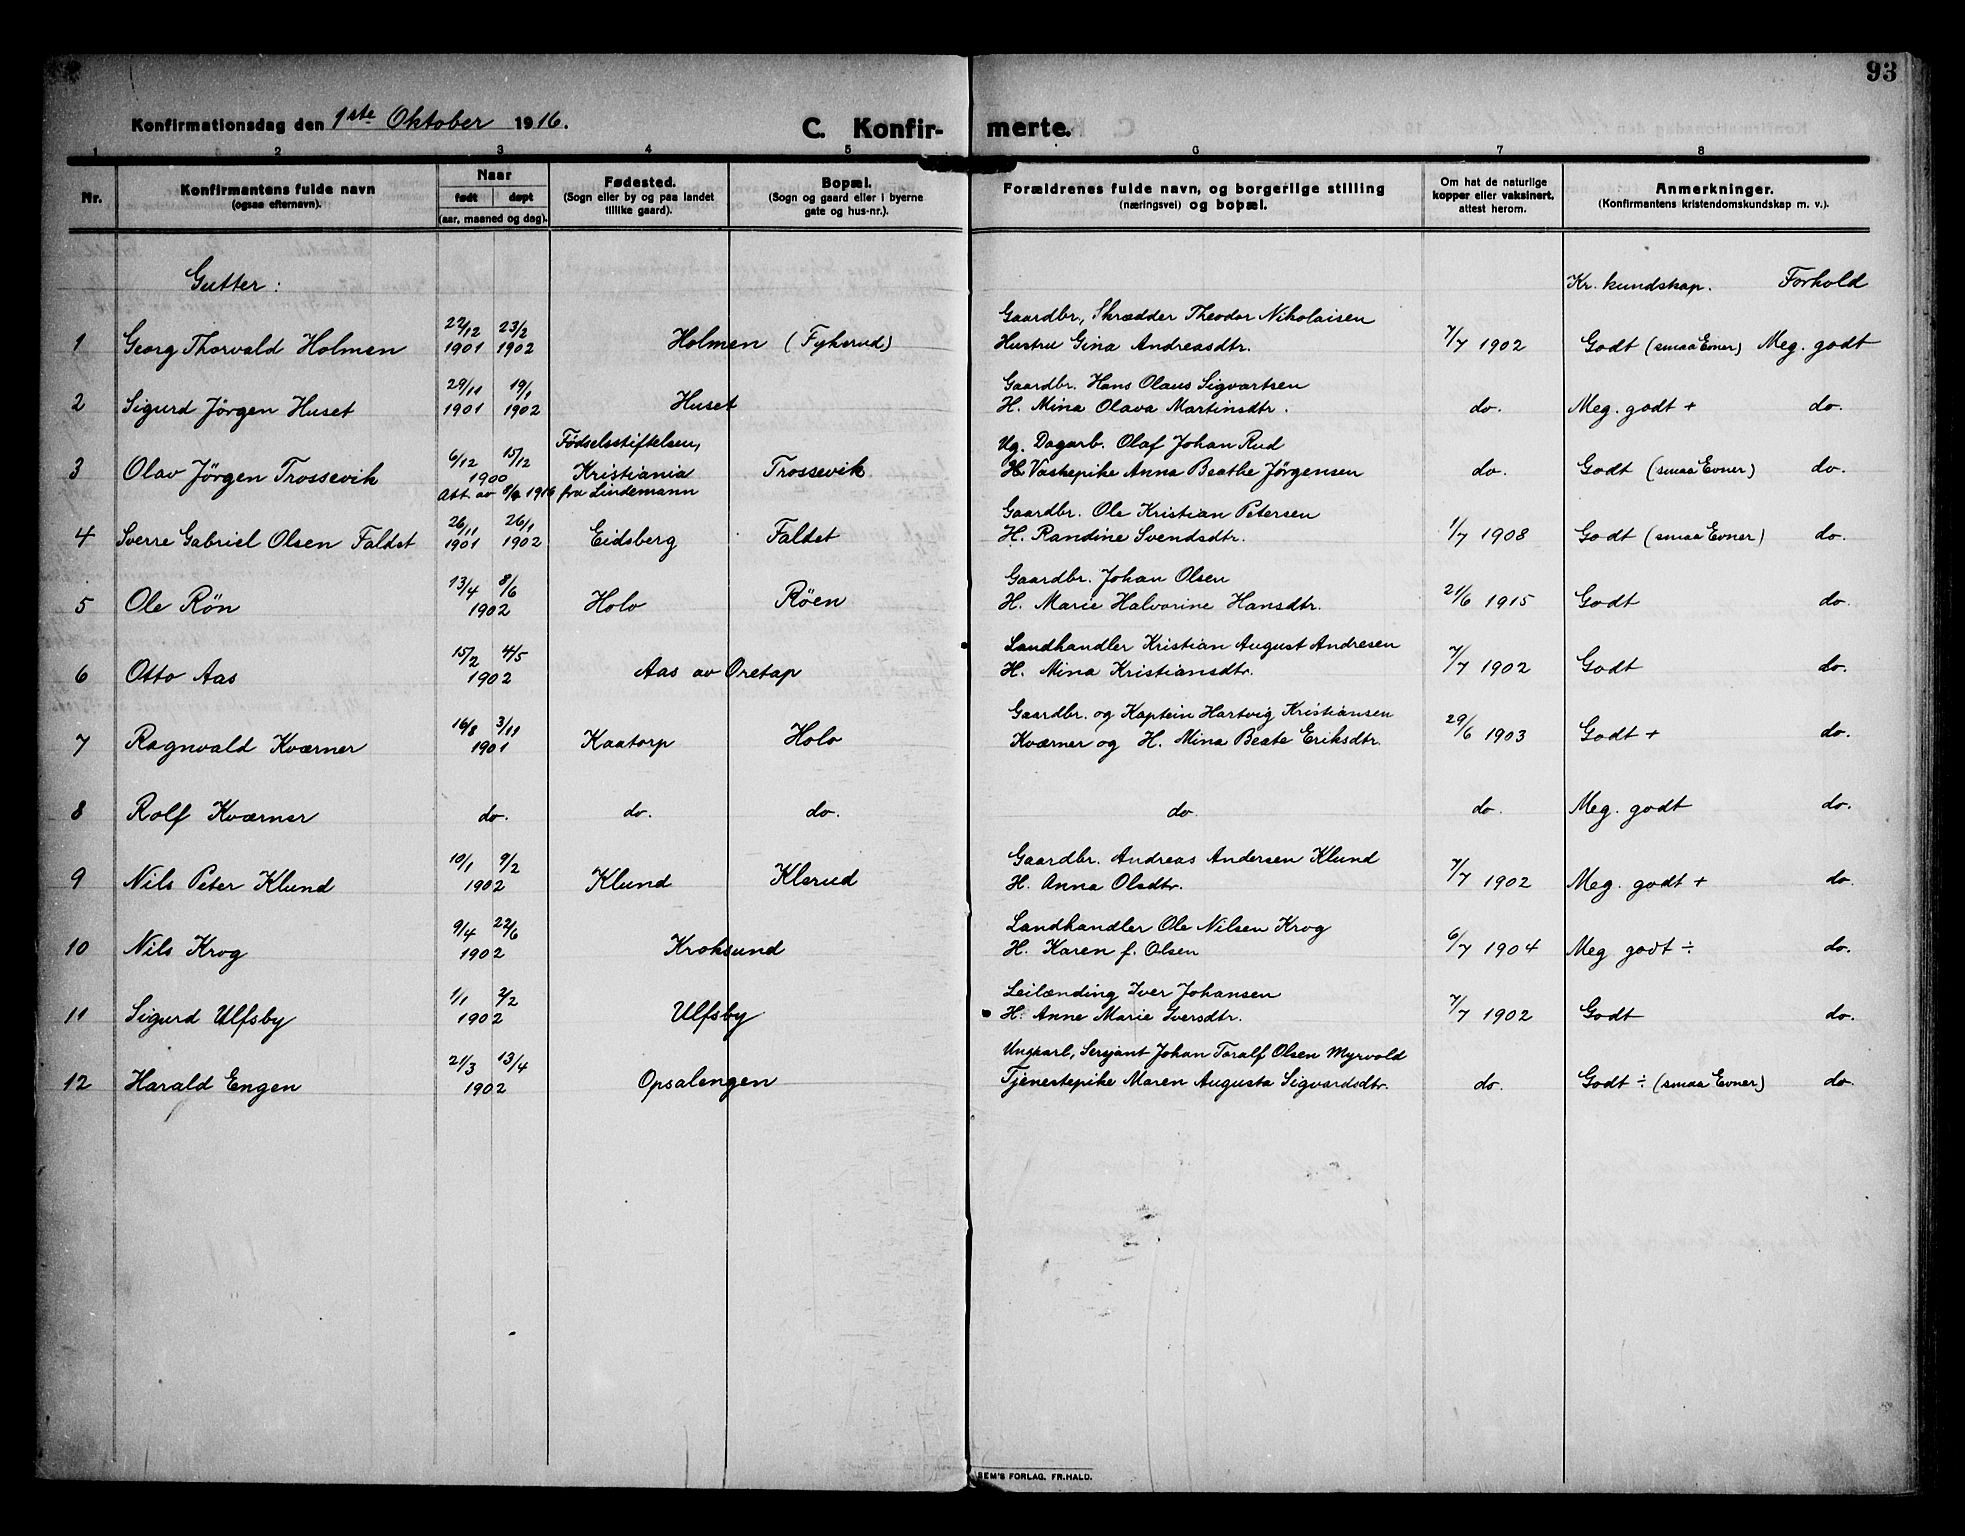 93
Konfirmationsdag den 1ste Oktober 1916.
C. Konfir- merte.
1 2 3 4 5 6 7 8
Nr. Konfirmantens fulde navn (ogsaa efternavn). Naar født døpt (aar, maaned og dag). Fødested. (Sogn eller by og paa landet tillike gaard). Bopæl. (Sogn og gaard eller i byerne gate og hus-nr.). Forældrenes fulde navn, og borgerlige stilling (næringsvei) og bopæl. Om hat de naturlige kopper eller vaksinert, attest herom. Anmerkninger. (Konfirmantens kristendomskundskap m. v.).
Gutter: Kr. kundskap. Forhold
22/12 23/2 Gaardbr, Skrædder Theodor Nikolaisen
1 Georg Thorvald Holmen 1901 1902 Holmen (Fykerud) Hustru Gina Andreasdtr. 7/7 1902 Godt (smaa Evner) Meg. godt
29/11 19/1 Gaardbr. Hans Olaus Sigvartsen
2 Sigurd Jörgen Huset 1901 1902 Huset H. Mina Olava Martinsdtr. do. Meg. godt + do.
6/12 15/12 Fødselsstiftelsen, Ug. Dagarb. Olaf Johan Rud
3 Olav Jörgen Trossevik 1900 Kristiania Trossevik H. Vaskepike Anna Beathe Jørgensen do. Godt (smaa Evner) do.
Att. av 1916 fra Lindemann
26/11 26/1 Gaardbr. Ole Kristian Petersen
4 Sverre Gabriel Olsen Faldet 1901 1902 Eidsberg Faldet H. Randine Svendsdtr. 1/7 1908 Godt (smaa Evner) do.
13/4 8/6 Gaardbr. Johan Olsen
5 Ole Rön 1902 Holo Röen H. Marie Halvorine Hansdtr. 21/6 1915 Godt do.
15/2 4/5 Landhandler Kristian August Andresen
6 Otto Aas 1902 Aas av Oretap H. Mina Kristiansdtr. 7/7 1902 Godt do.
16/8 3/11 Gaardbr. og Kaptein Hartvig Kristiansen
7 Ragnvald Kværner 1901 Kaatorp Holo Kværner og H. Mina Beate Eriksdtr. 29/6 1903 Godt + do.
8 Rolf Kværner do. do. do. do. do. Meg. godt do.
10/1 9/2 Gaardbr. Andreas Andersen Klund
9 Nils Peter Klund 1902 Klund Klerud H. Anna Olsdtr. 7/7 1902 Meg. godt + do.
9/4 22/6 Landhandler Ole Nilsen Krog
10 Nils Krog 1902 Kroksund H. Karen f. Olsen 6/7 1904 Meg godt ÷ do.
1/1 2/2 Leilænding Iver Johansen
11 Sigurd Ulfsby 1902 Ulfsby H. Anne Marie Iversdtr. 7/7 1902 Godt do.
21/3 13/4 Ungkarl, Sersjant Johan Toralf Olsen Myrvold
12 Harald Engen 1902 Opsalengen Tjenestepike Maren Augusta Sigvardsdtr. do. Godt ÷ (smaa Evner) do.
SEM'S FORLAG, FR.HALD.